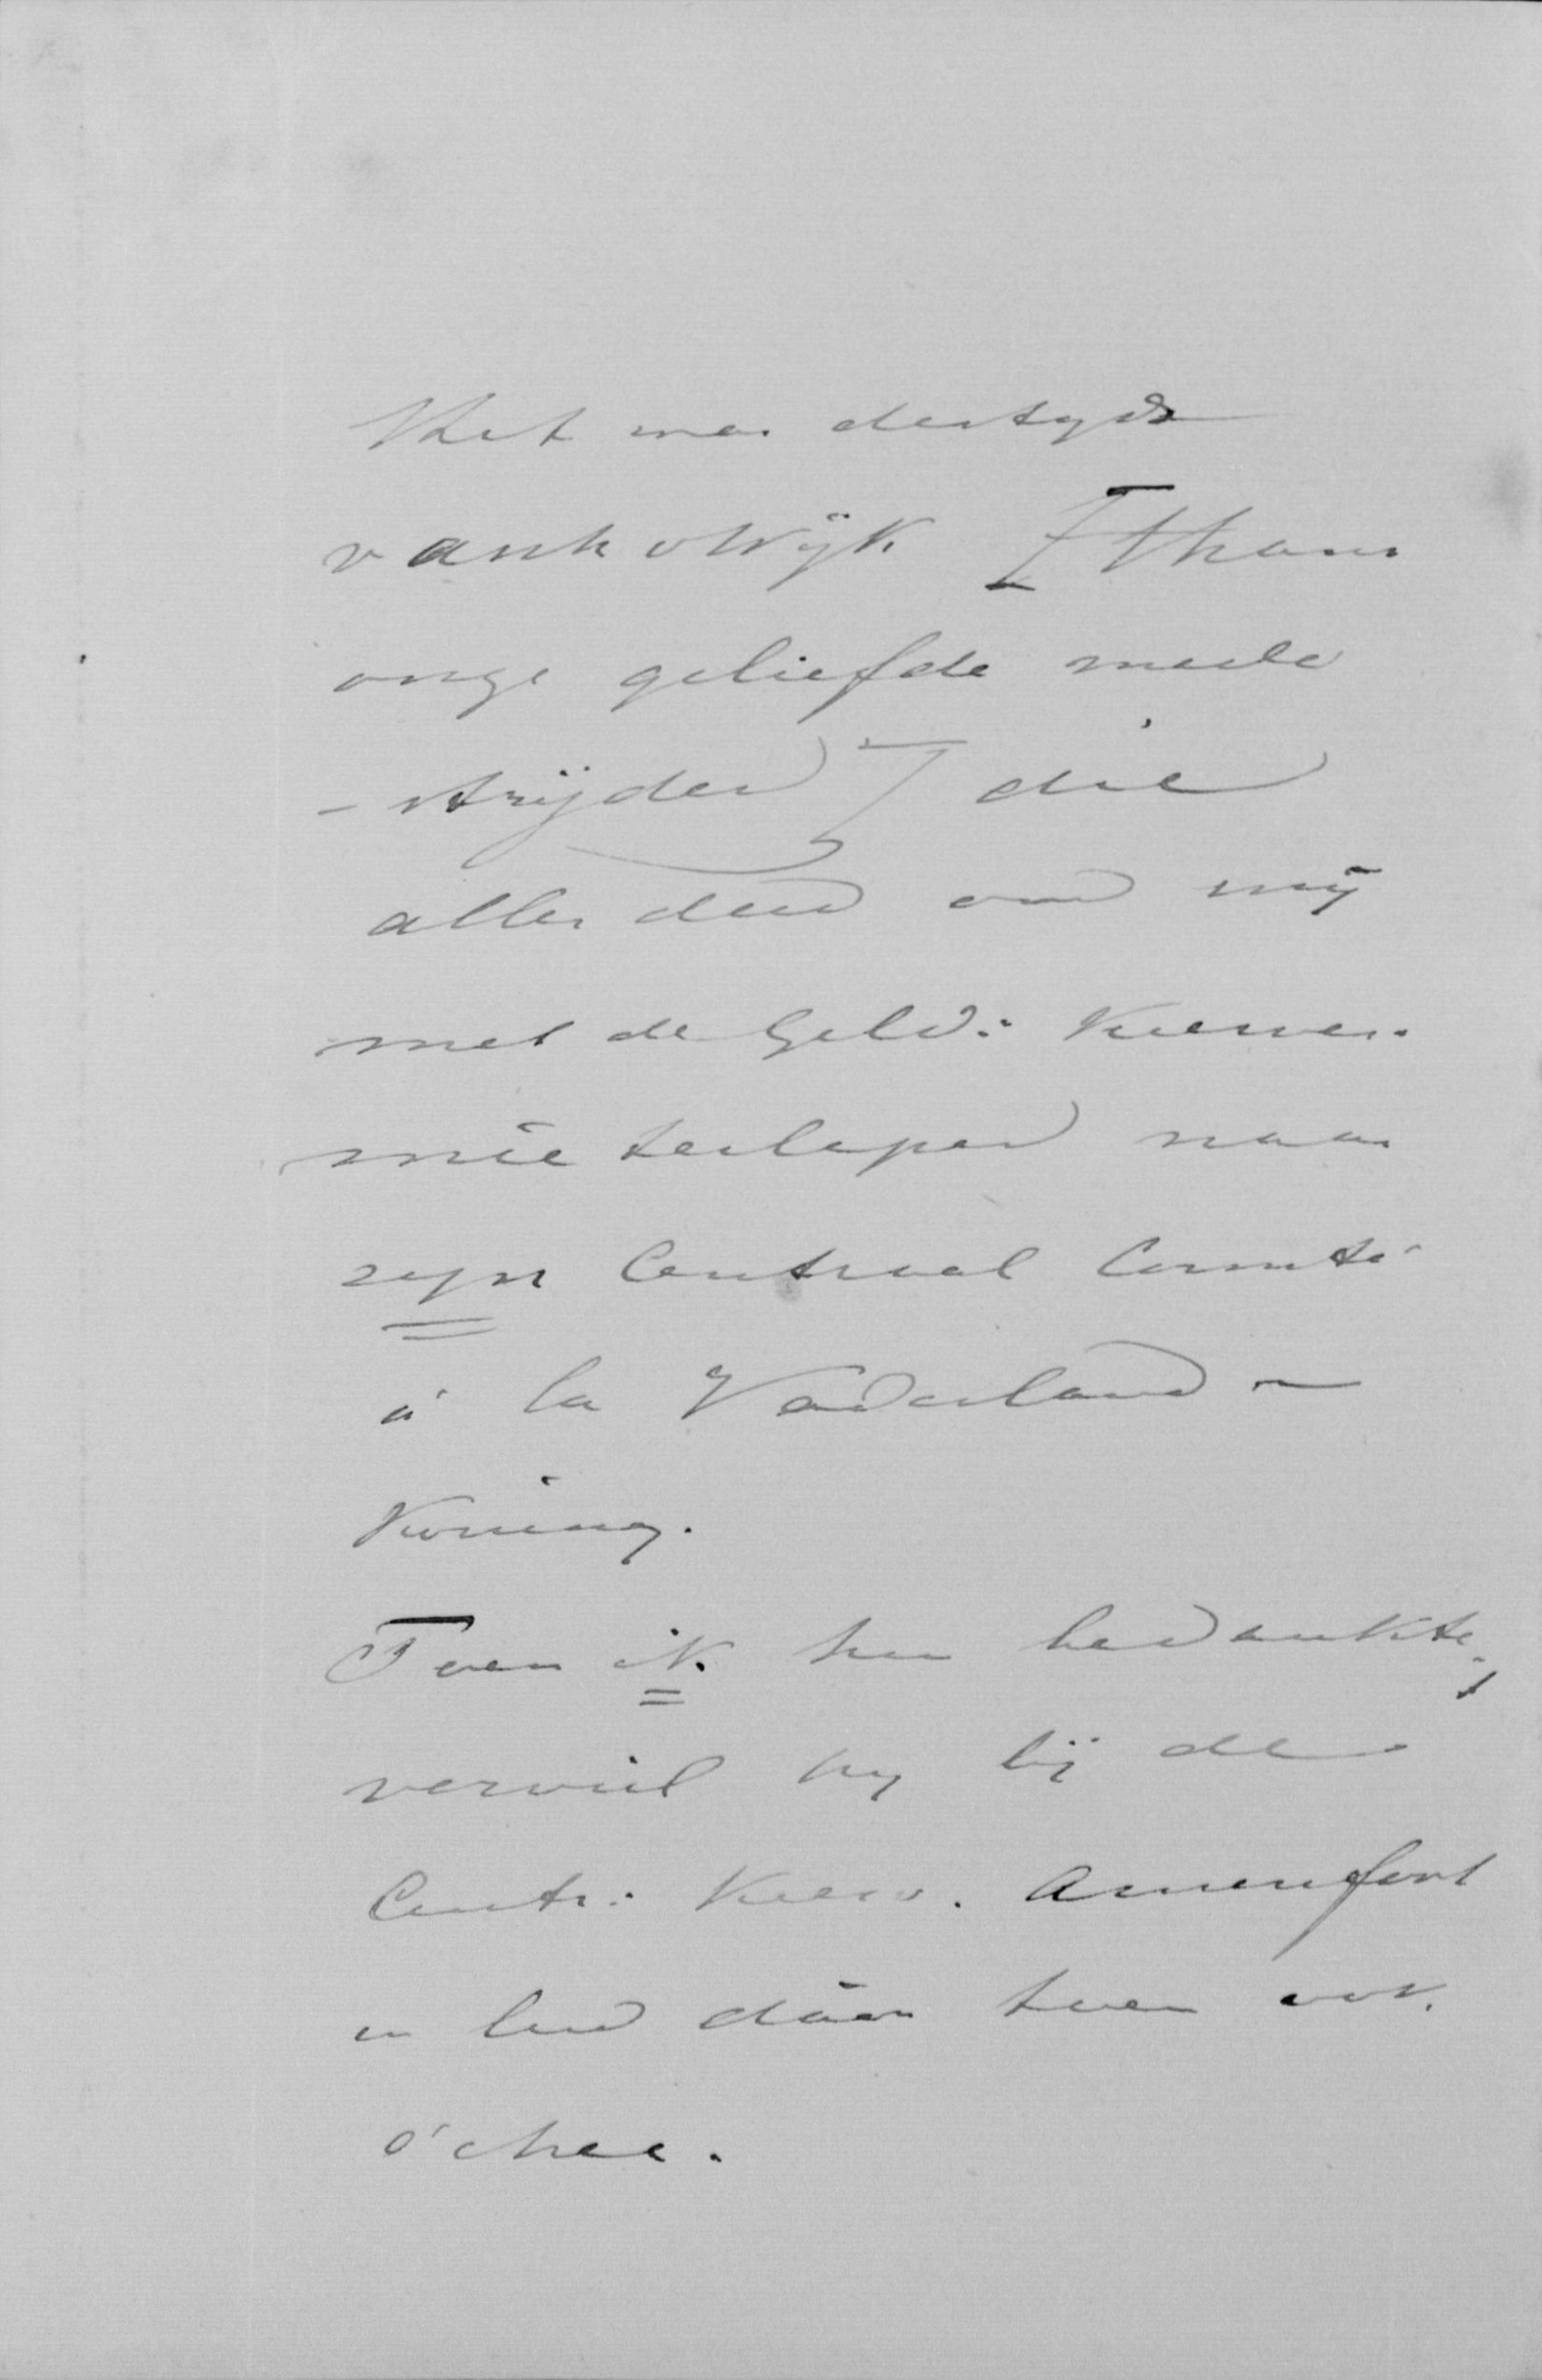 Het was destyds
van ho Wÿk [thans
onze geliefde mede
- strijder] die
alles deed om mij
met de Geld: Kiesver.
mie te slepen naar
zyn Centraal Comité
à la Vaderland -
Koning.
Toen ik hem bedankte,
verviel hy bij de
Centr: Kiesv. Amersfoort
en leed dáar toen ook
échec.